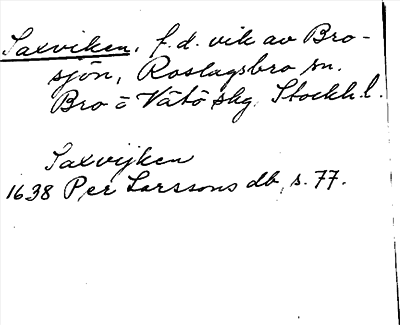 Saxviken, f.d. vik av Bro-
sjön, Roslagsbro sn.
Bro o Vätö skg. Stockh.l.
Saxvijken
1638 Per Larssons db, s. 77.